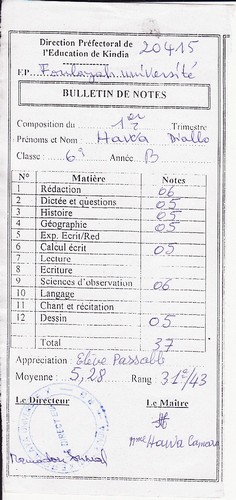 Direction Préfectoral de
l'Education de Kindia 20415
EP Foulayah université
BULLETIN DE NOTES
Composition du 1er Trimestre
Prénoms et Nom : Hawa Diallo
Classe : 6e Année B
N° Matière Notes
1 Rédaction 06
2 Dictée et questions 05
3 Histoire 05
4 Géographie 05
5 Exp. Ecrit/Red
6 Calcul écrit 05
7 Lecture
8 Ecriture
9 Sciences d'observation 06
10 Langage
11 Chant et récitation
12 Dessin 05
Total 37
Appréciation : Elève Passable
Moyenne : 5,28 Rang 31e/43
Le Directeur Le Maître
Mme Hawa Camara
Mamadou